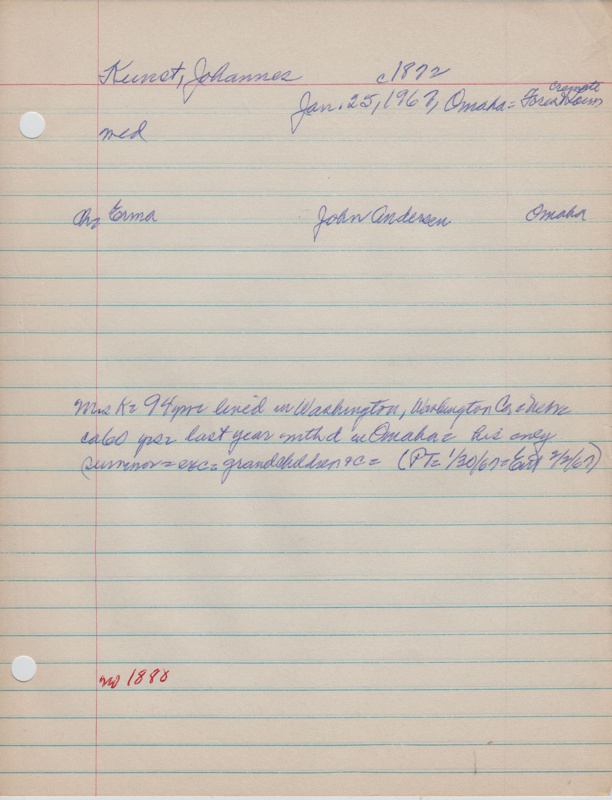 Kunst, Johannes c1872
Cremate
Jan. 25, 1967, Omaha = Forest Lawn
med
Ch, Erma John Andersen Omaha
Mrs K= 94 yrs= lived in Washington, Washington Co. = Nebr
ca 60 yrs= last year with d in Omaha= his only
survivor = exc= grandchildren &c= (PT= 1/30/67= Ent 2/2/67)
no 1880